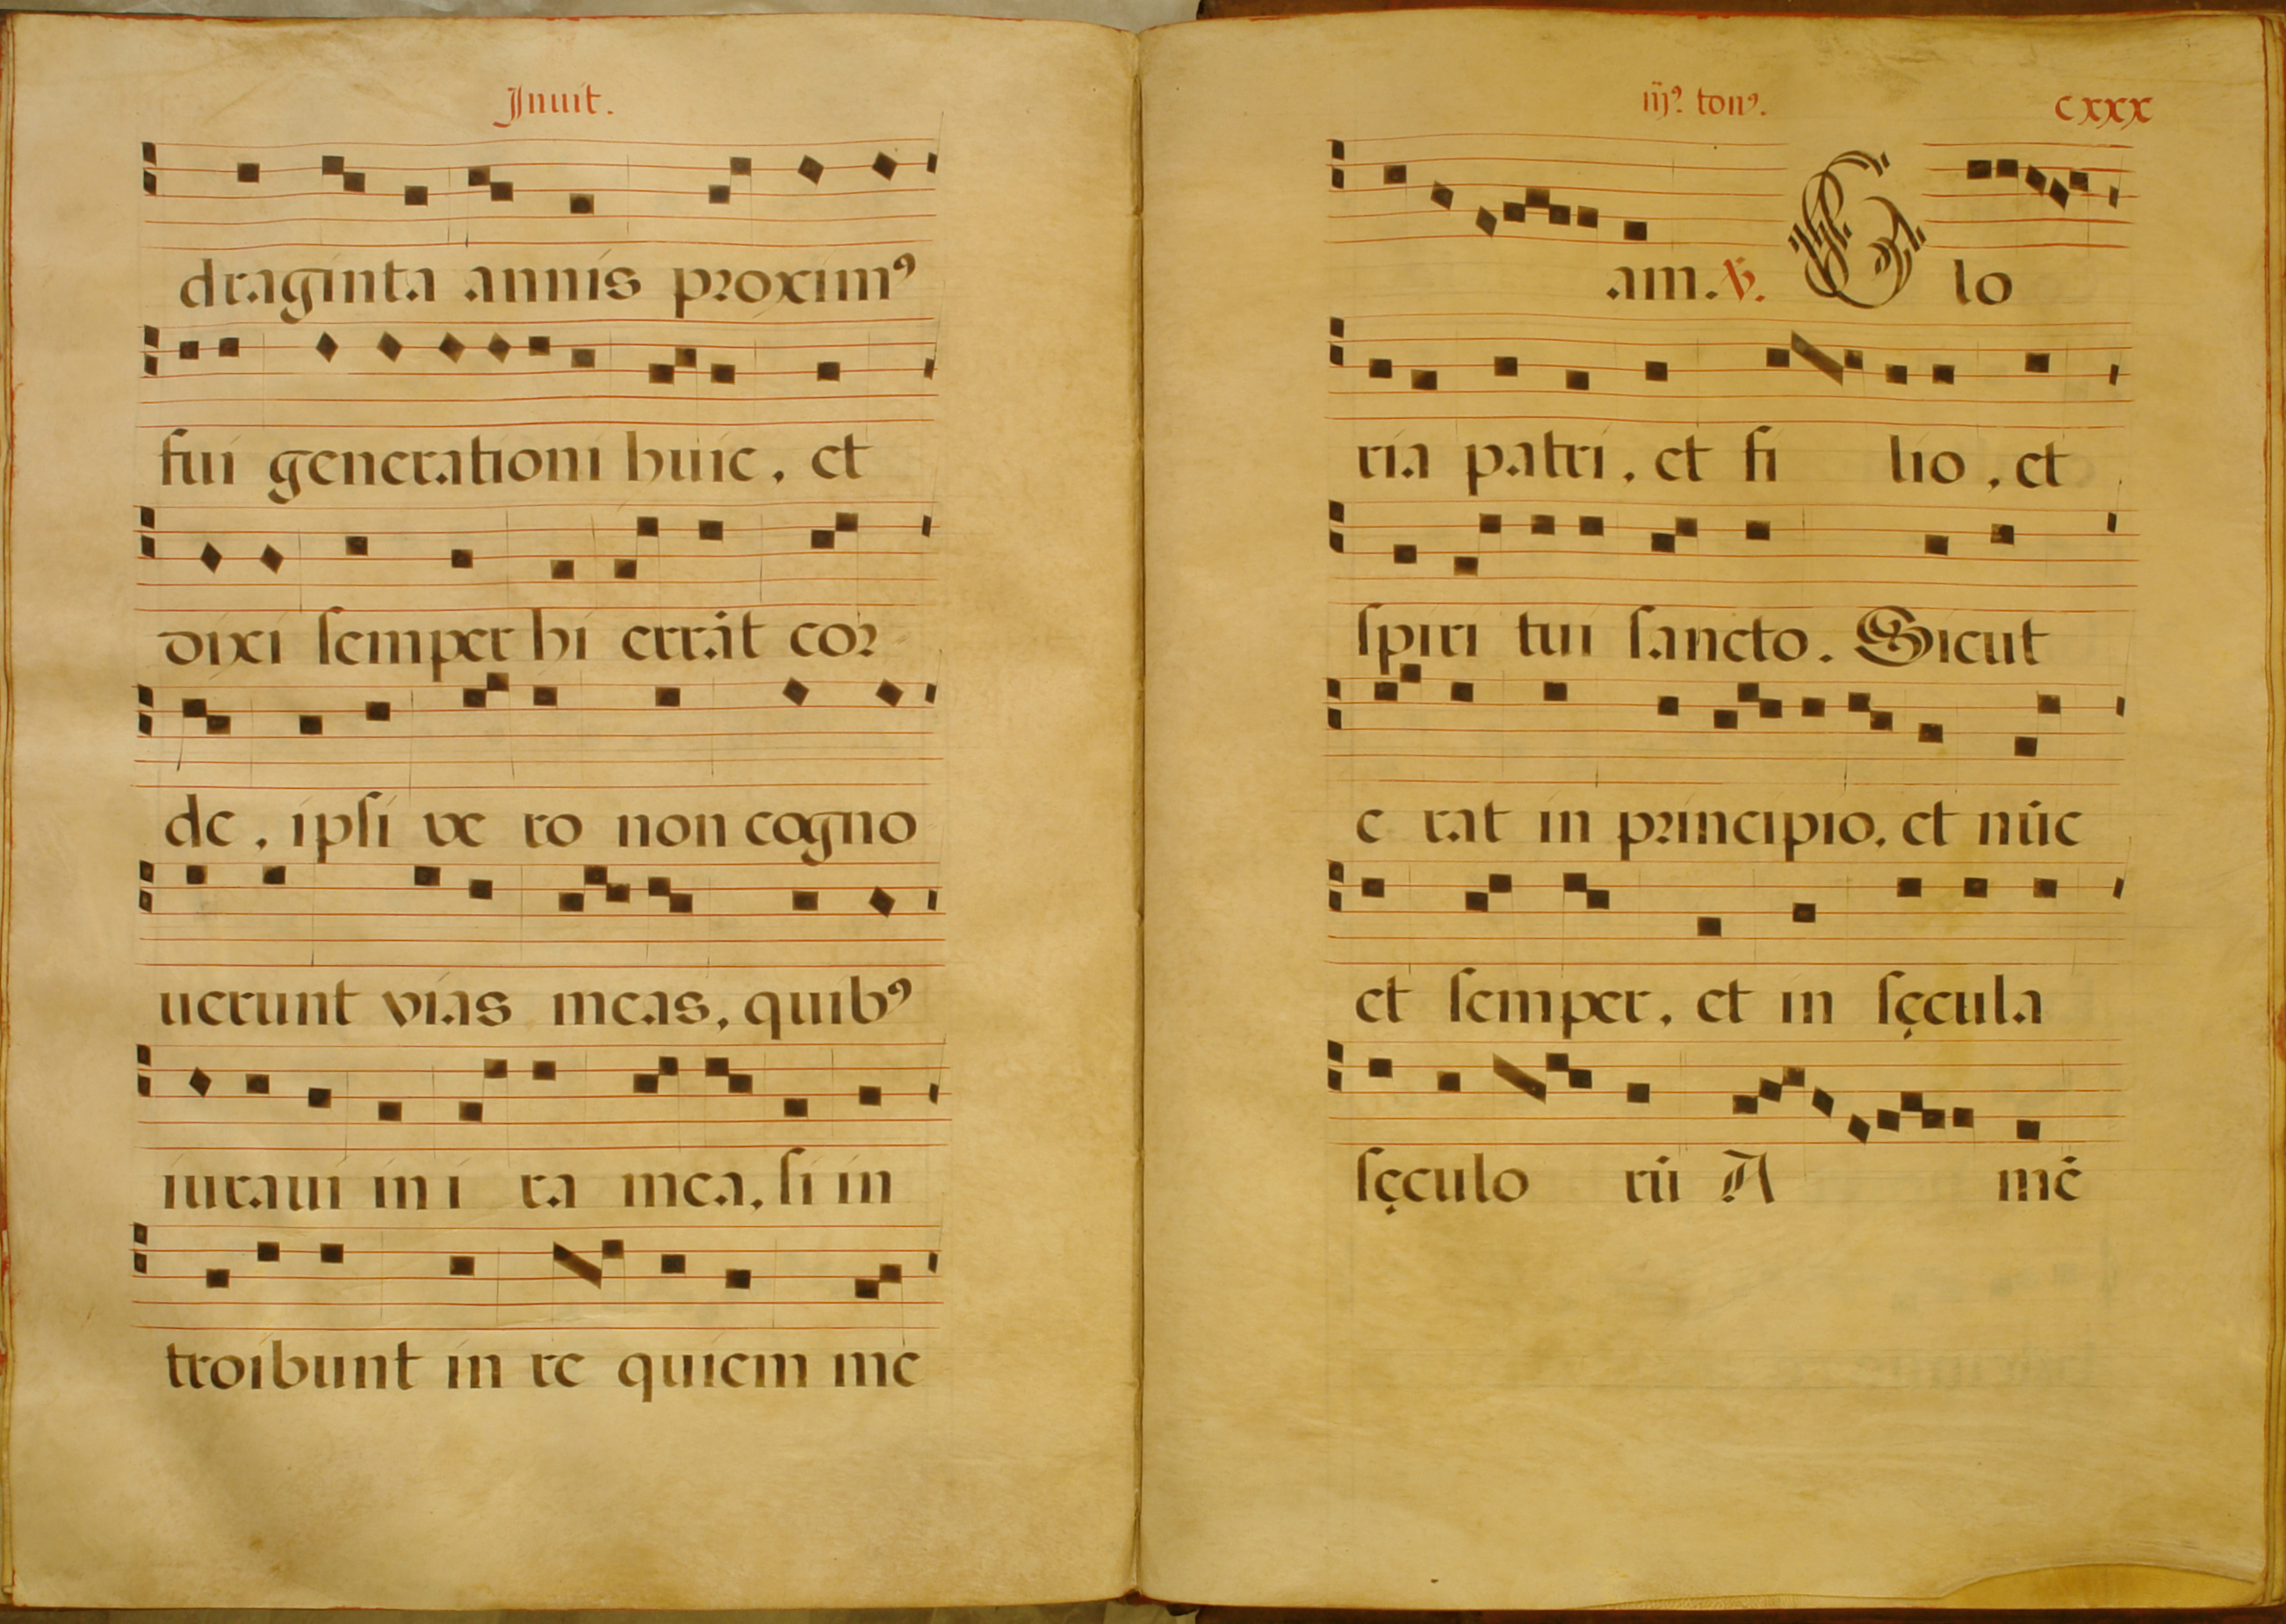 Inuit.
draginta annis proximꝰ
fui generationi huic, et
dixi semper hi errāt cor
de, ipsi ve ro non cogno
uerunt vias meas, quibꝰ
iuraui in i ra mea, si in
troibunt in re quiem me
iijꝰ tonꝰ. cxxx
am. ℣. Glo
ria patri, et fi lio, et
spiri tui sancto. Sicut
e rat in principio, et nūc
et semper, et in sęcula
sęculo rū A mē